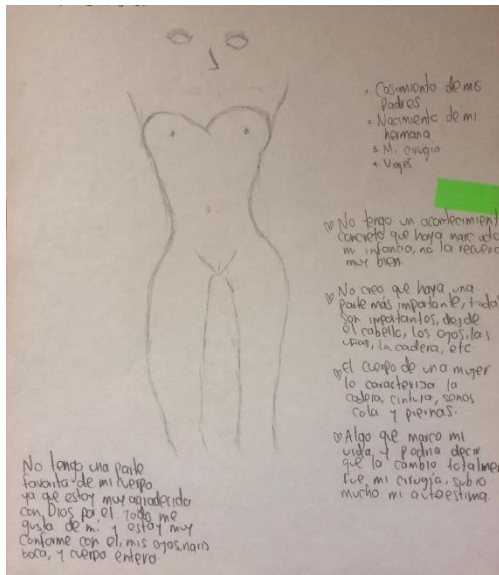 1. Casamiento de mis
Padres
2. Nacimiento de mi
hermana
3. Mi cirugia
4. Viajes
♡ No tengo un acontecimient
concreto que haya marcado
mi infancia, no la recuerdo
muy bien.
♡ No creo que haya una
parte más importante, todas
son importantos, desde
el cabello, los ojos, las
uñas, la cadera, etc
♡ El cuerpo de una mujer
lo caracteriza la
cadera, cintura, senos
cola y piernas.
♡ Algo que marco mi
vida, y podria decir
que la cambio totalmen
fue mi cirugia, subio
mucho mi autoestima.
No tengo una parte
favorita de mi cuerpo
ya que estoy muy agradecido
con Dios por el todo me
gusta de mi y estoy muy
conforme con el, mis ojos, nariz
boca, y cuerpo entero.